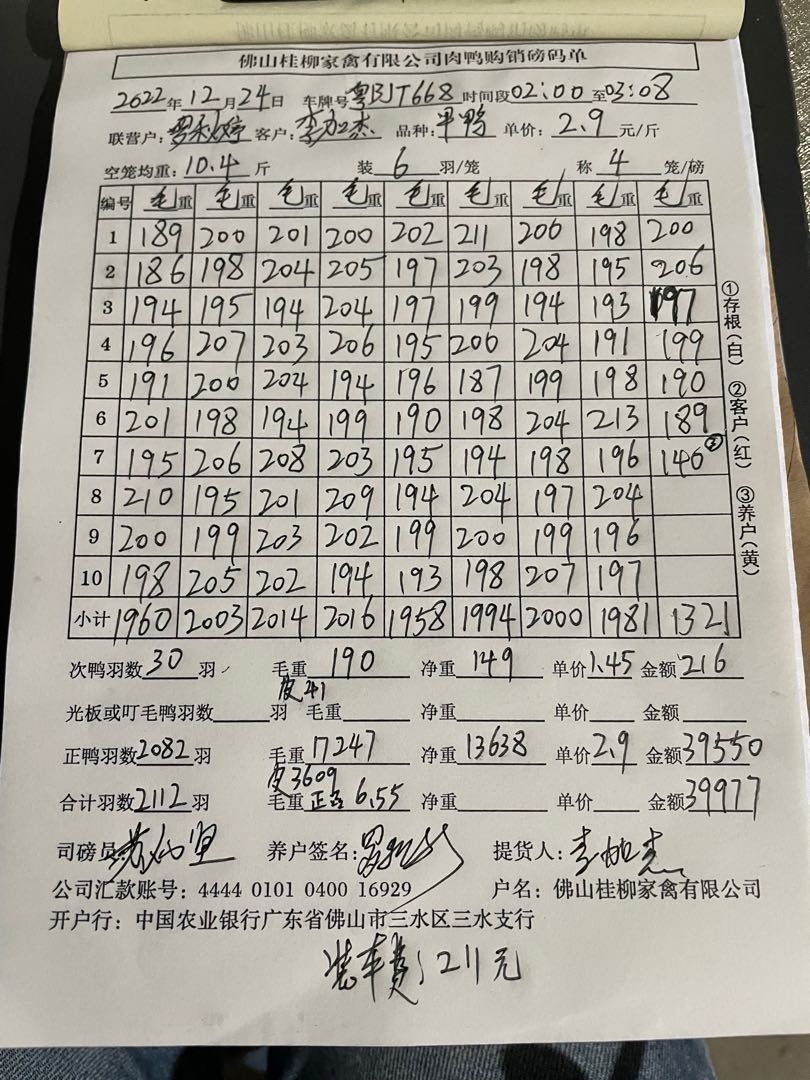 佛山桂柳家禽有限公司肉鸭购销磅码单
2022年12月24日 车牌号粤BJT668时间段02:00至03:08
联营户: 客户:李加杰 品种:半鸭 单价:2.9元/斤
空笼均重:10.4斤 装6羽/笼 称4笼/磅
编号 毛重 毛重 毛重 毛重 毛重 毛重 毛重 毛重 毛重
1 189 200 201 200 202 211 206 198 200
2 186 198 204 205 197 203 198 195 206
3 194 195 194 204 197 199 194 193 197
4 196 207 203 206 195 200 204 191 199
5 191 200 204 194 196 187 199 198 190
6 201 198 194 199 190 198 204 213 189
7 195 206 208 203 195 194 198 196 140
8 210 195 201 209 194 204 197 204
9 200 199 203 202 199 200 199 196
10 198 205 202 194 193 198 207 197
小计 1960 2003 2014 2016 1958 1994 2000 1981 1321
①存根(白) ②客户(红) ③养户(黄)
次鸭羽数30羽 毛重190 净重149 单价1.45 金额216
皮41
光板或叮毛鸭羽数 羽 毛重 净重 单价 金额
正鸭羽数2082羽 毛重17247 净重13638 单价2.9 金额39550
皮3609
合计羽数2112羽 毛重 6.55 净重 单价 金额39977
司磅员: 养户签名: 提货人:李加杰
公司汇款账号:4444 0101 0400 16929 户名:佛山桂柳家禽有限公司
开户行:中国农业银行广东省佛山市三水区三水支行
装车费:211元